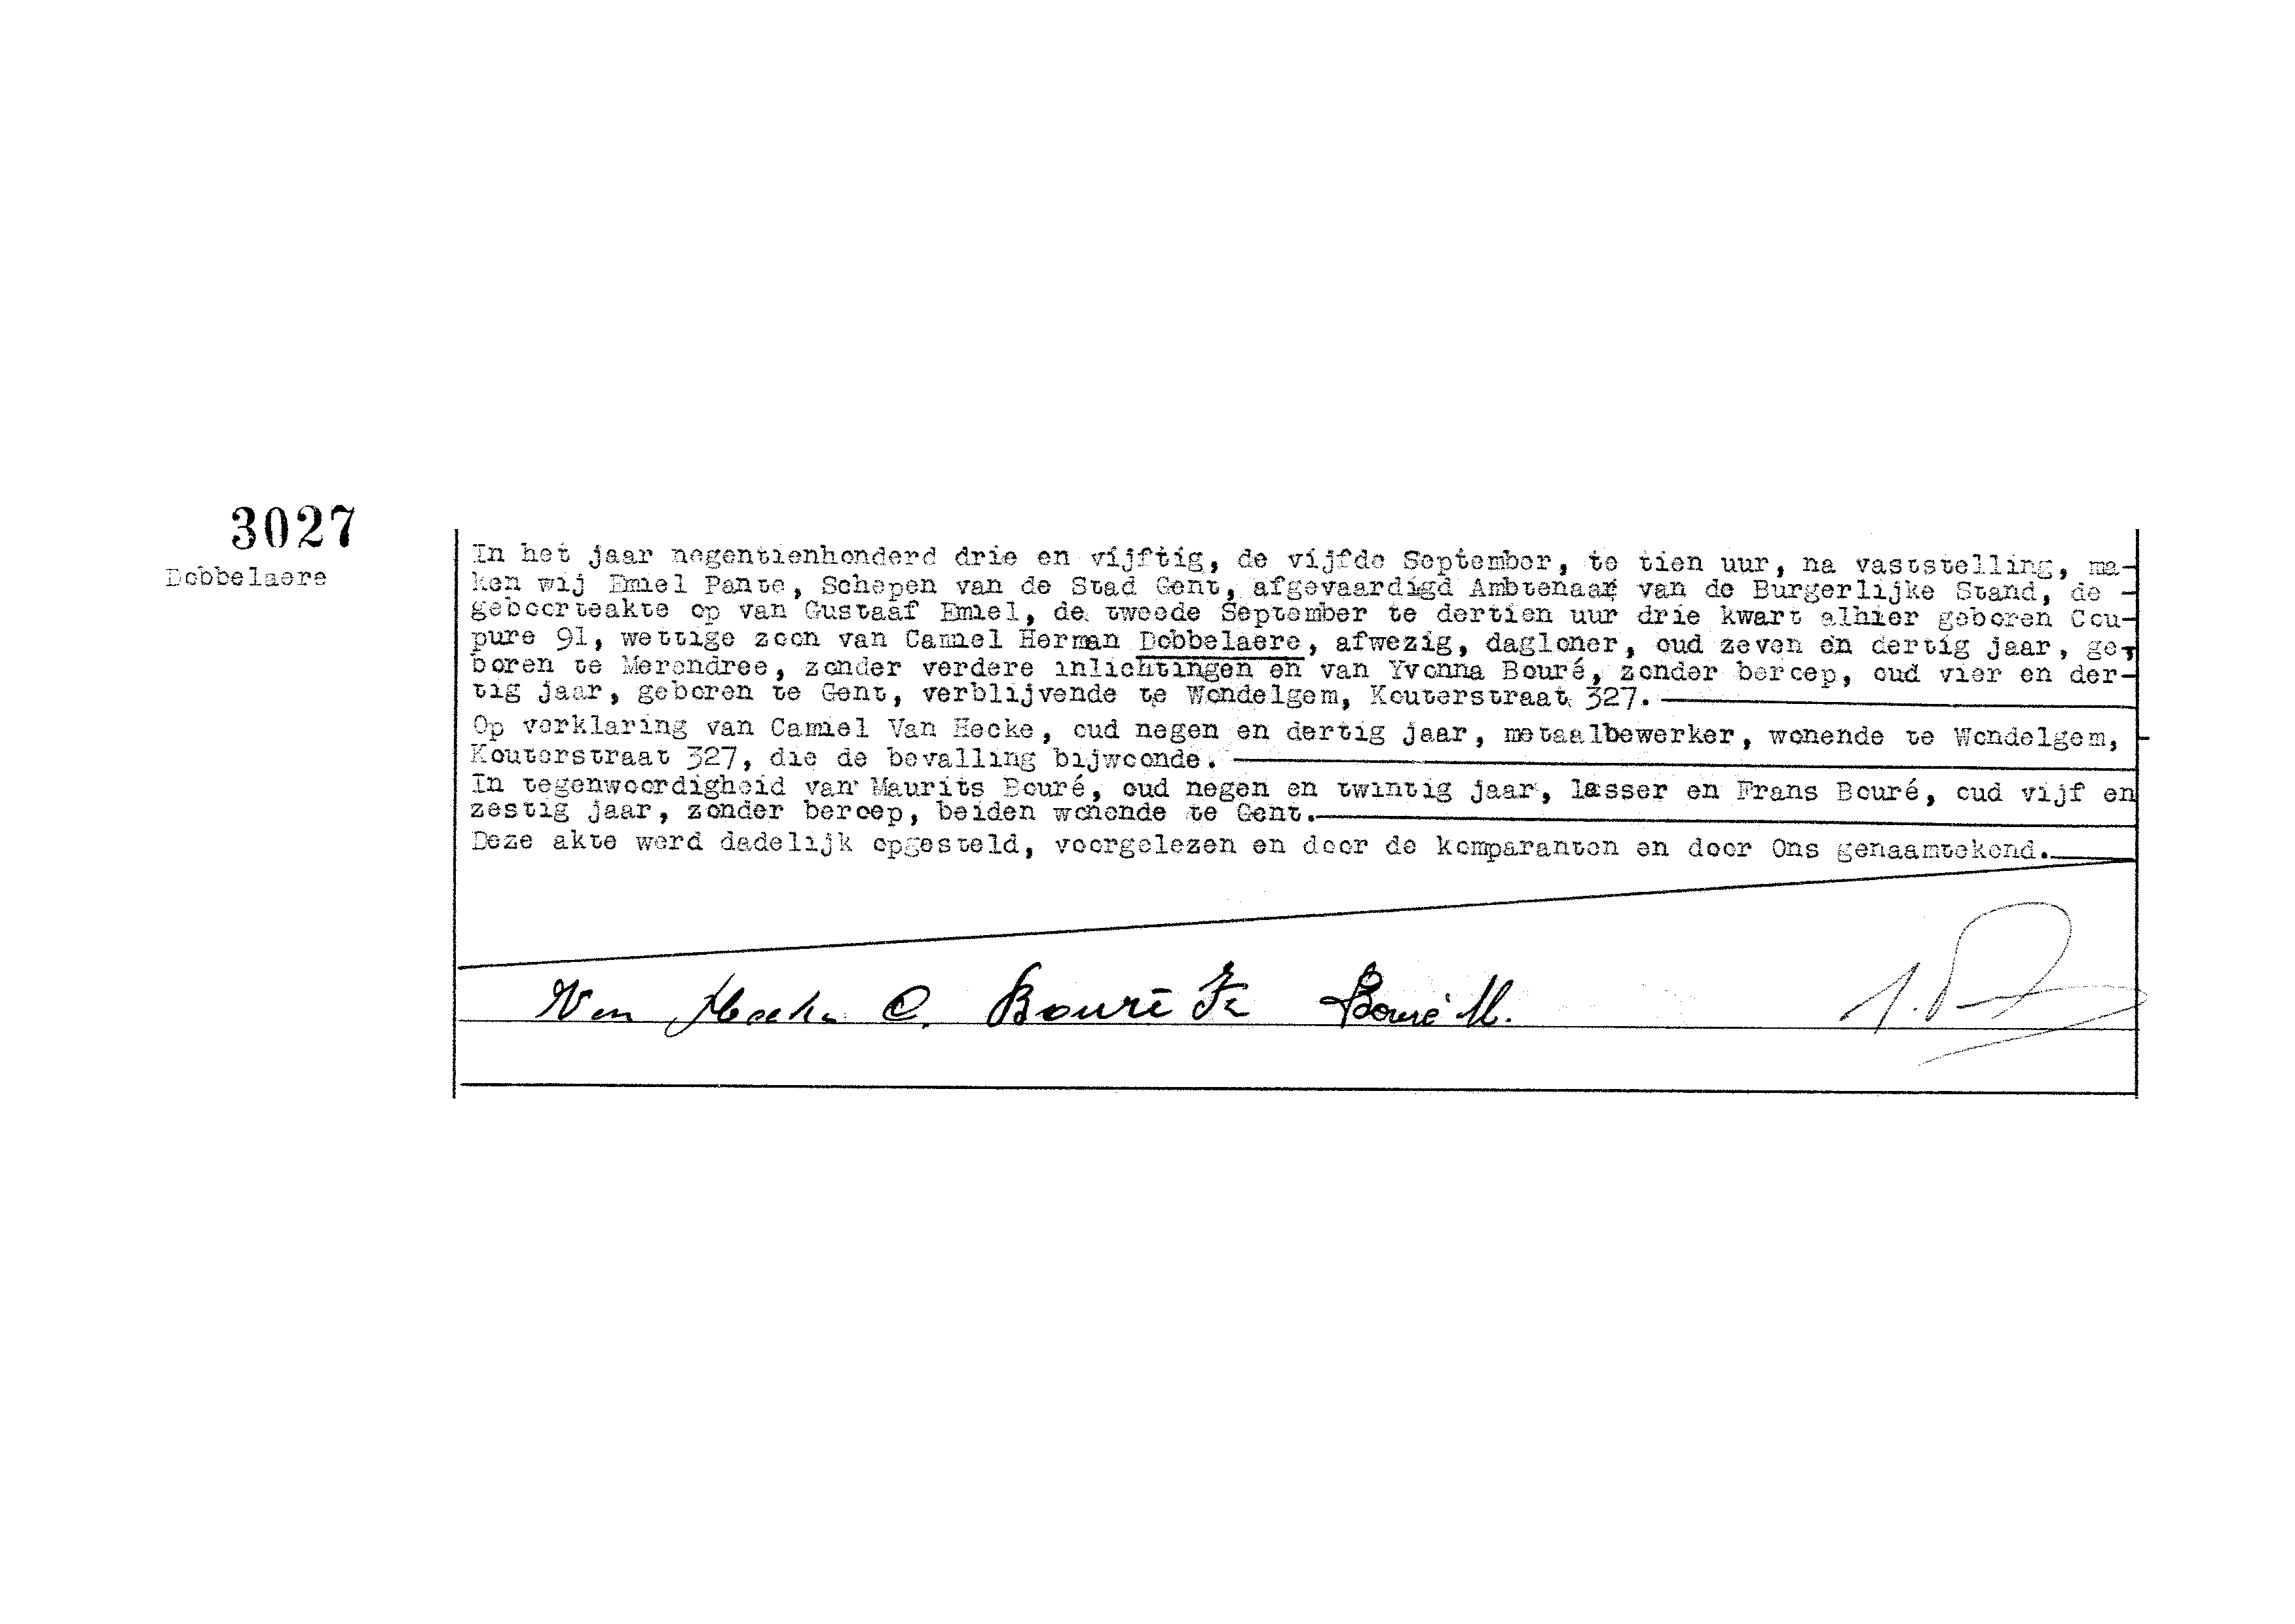 3027
Dobbelaere
In het jaar negentienhonderd drie en vijftig, de vijfde September, te tien uur, na vaststelling, ma-
ken wij Emiel Pante, Schepen van de Stad Gent, afgevaardigd Ambtenaar van de Burgerlijke Stand, de -
geboorteakte op van Gustaaf Emiel, de tweede September te dertien uur drie kwart alhier geboren Cou-
pure 91, wettige zoon van Camiel Herman Dobbelaere, afwezig, dagloner, oud zeven en dertig jaar, ge-
boren te Merendree, zonder verdere inlichtingen en van Yvonna Bouré, zonder beroep, oud vier en der-
tig jaar, geboren te Gent, verblijvende te Wondelgem, Kouterstraat 327.
Op verklaring van Camiel Van Hecke, oud negen en dertig jaar, metaalbewerker, wonende te Wondelgem, -
Kouterstraat 327, die de bevalling bijwoonde.
In tegenwoordigheid van Maurits Bouré, oud negen en twintig jaar, lasser en Frans Bouré, oud vijf en
zestig jaar, zonder beroep, beiden wonende te Gent.
Deze akte werd dadelijk opgesteld, voorgelezen en door de komparanten en door Ons genaamtekend.
Van Hecke C. Bouré Fr Bouré M.